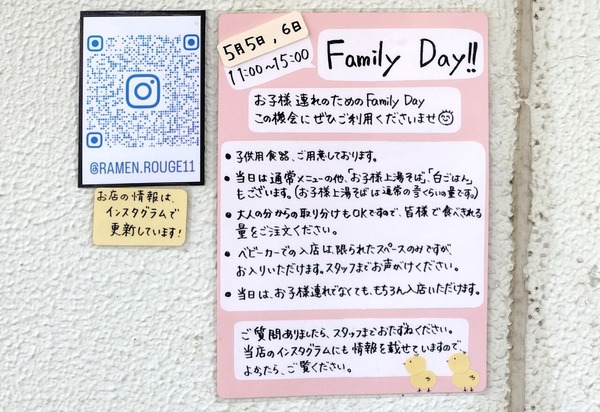 @RAMEN.ROUGE11
お店の情報は、
インスタグラムで
更新しています!
5月5日,6日
11:00~15:00
Family Day!!
お子様連れのための Family Day
この機会にぜひご利用くださいませ
• 子供用食器、ご用意しております。
• 当日は通常メニューの他、「お子様上湯そば」、「白ごはん」
もございます。(お子様上湯そばは通常の半分くらいの量です。)
• 大人の分からの取り分けもOKですので、皆様で食べきれる
量をご注文ください。
• ベビーカーでの入店は、限られたスペースのみですが、
お入りいただけます。スタッフまでお声がけください。
• 当日は、お子様連れでなくても、もちろん入店いただけます。
ご質問ありましたら、スタッフまでおたずねください。
当店のインスタグラムにも情報を載せていますので、
よかったら、ご覧ください。